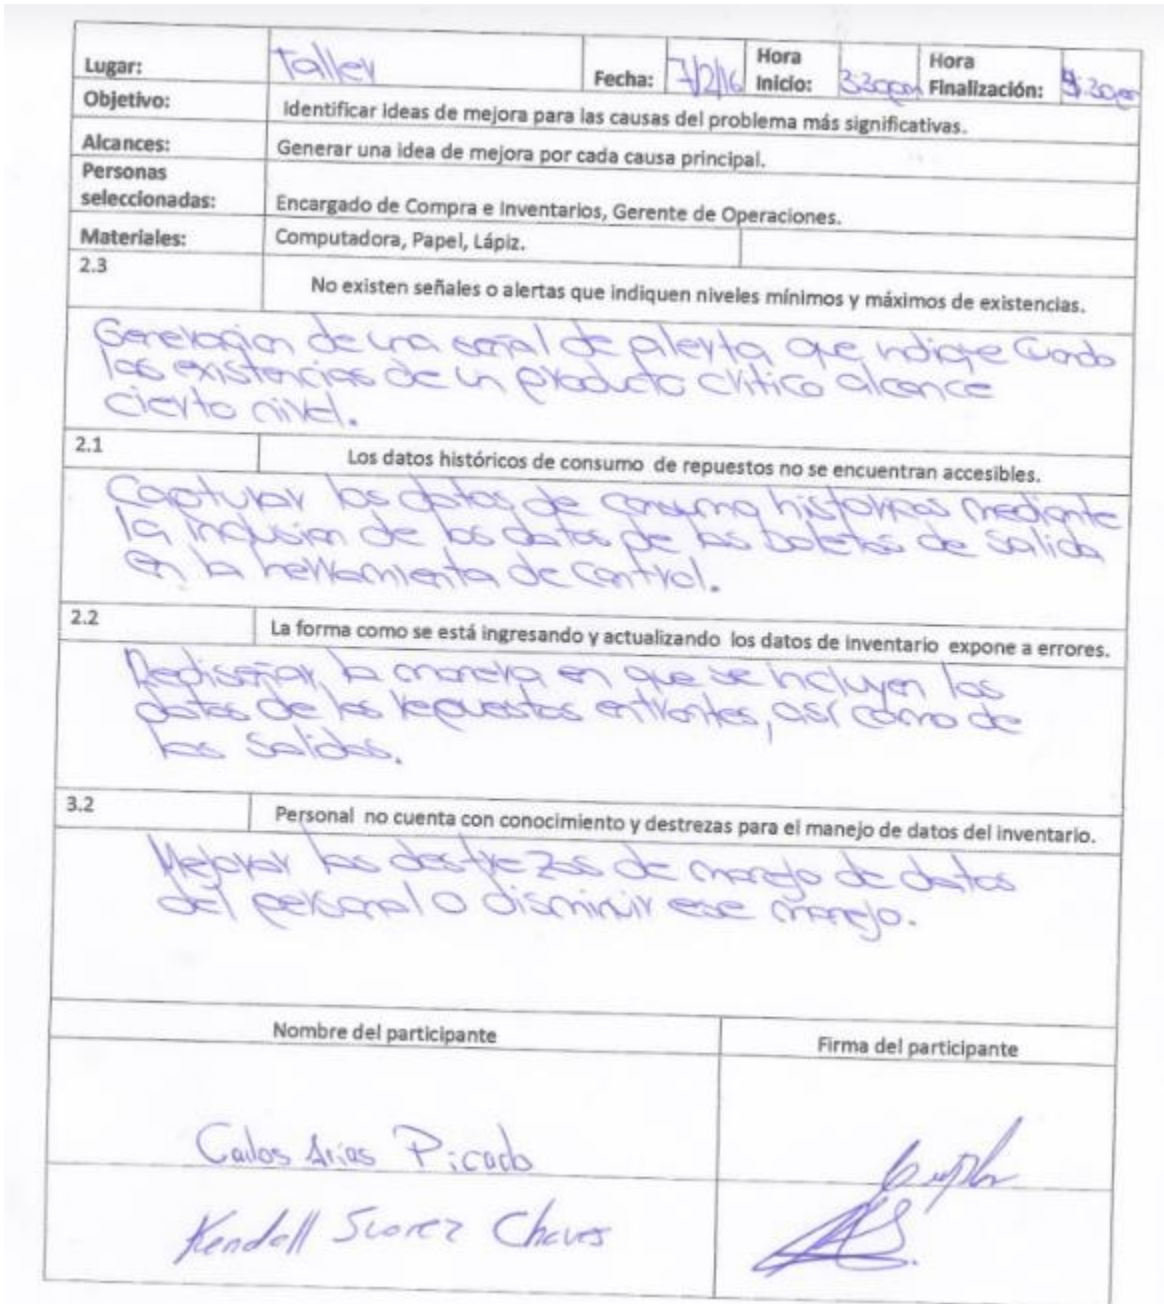 Lugar: Taller Fecha: 7/2/16 Hora Inicio: 3:30pm Hora Finalización: 4:30pm
Objetivo: Identificar ideas de mejora para las causas del problema más significativas.
Alcances: Generar una idea de mejora por cada causa principal.
Personas seleccionadas: Encargado de Compra e Inventarios, Gerente de Operaciones.
Materiales: Computadora, Papel, Lápiz.
2.3 No existen señales o alertas que indiquen niveles mínimos y máximos de existencias.
Generación de una señal de alerta que indique cuando
las existencias de un producto crítico alcance
cierto nivel.
2.1 Los datos históricos de consumo de repuestos no se encuentran accesibles.
Capturar los datos de consumo históricos mediante
la inclusión de los datos de las boletas de salida
en la herramienta de control.
2.2 La forma como se está ingresando y actualizando los datos de inventario expone a errores.
Rediseñar la manera en que se incluyen los
datos de los repuestos entrantes, así como de
las salidas.
3.2 Personal no cuenta con conocimiento y destrezas para el manejo de datos del inventario.
Mejorar las destrezas de manejo de datos
del personal o disminuir ese manejo.
Nombre del participante Firma del participante
Carlos Arias Picado
Kendall Suarez Chaves